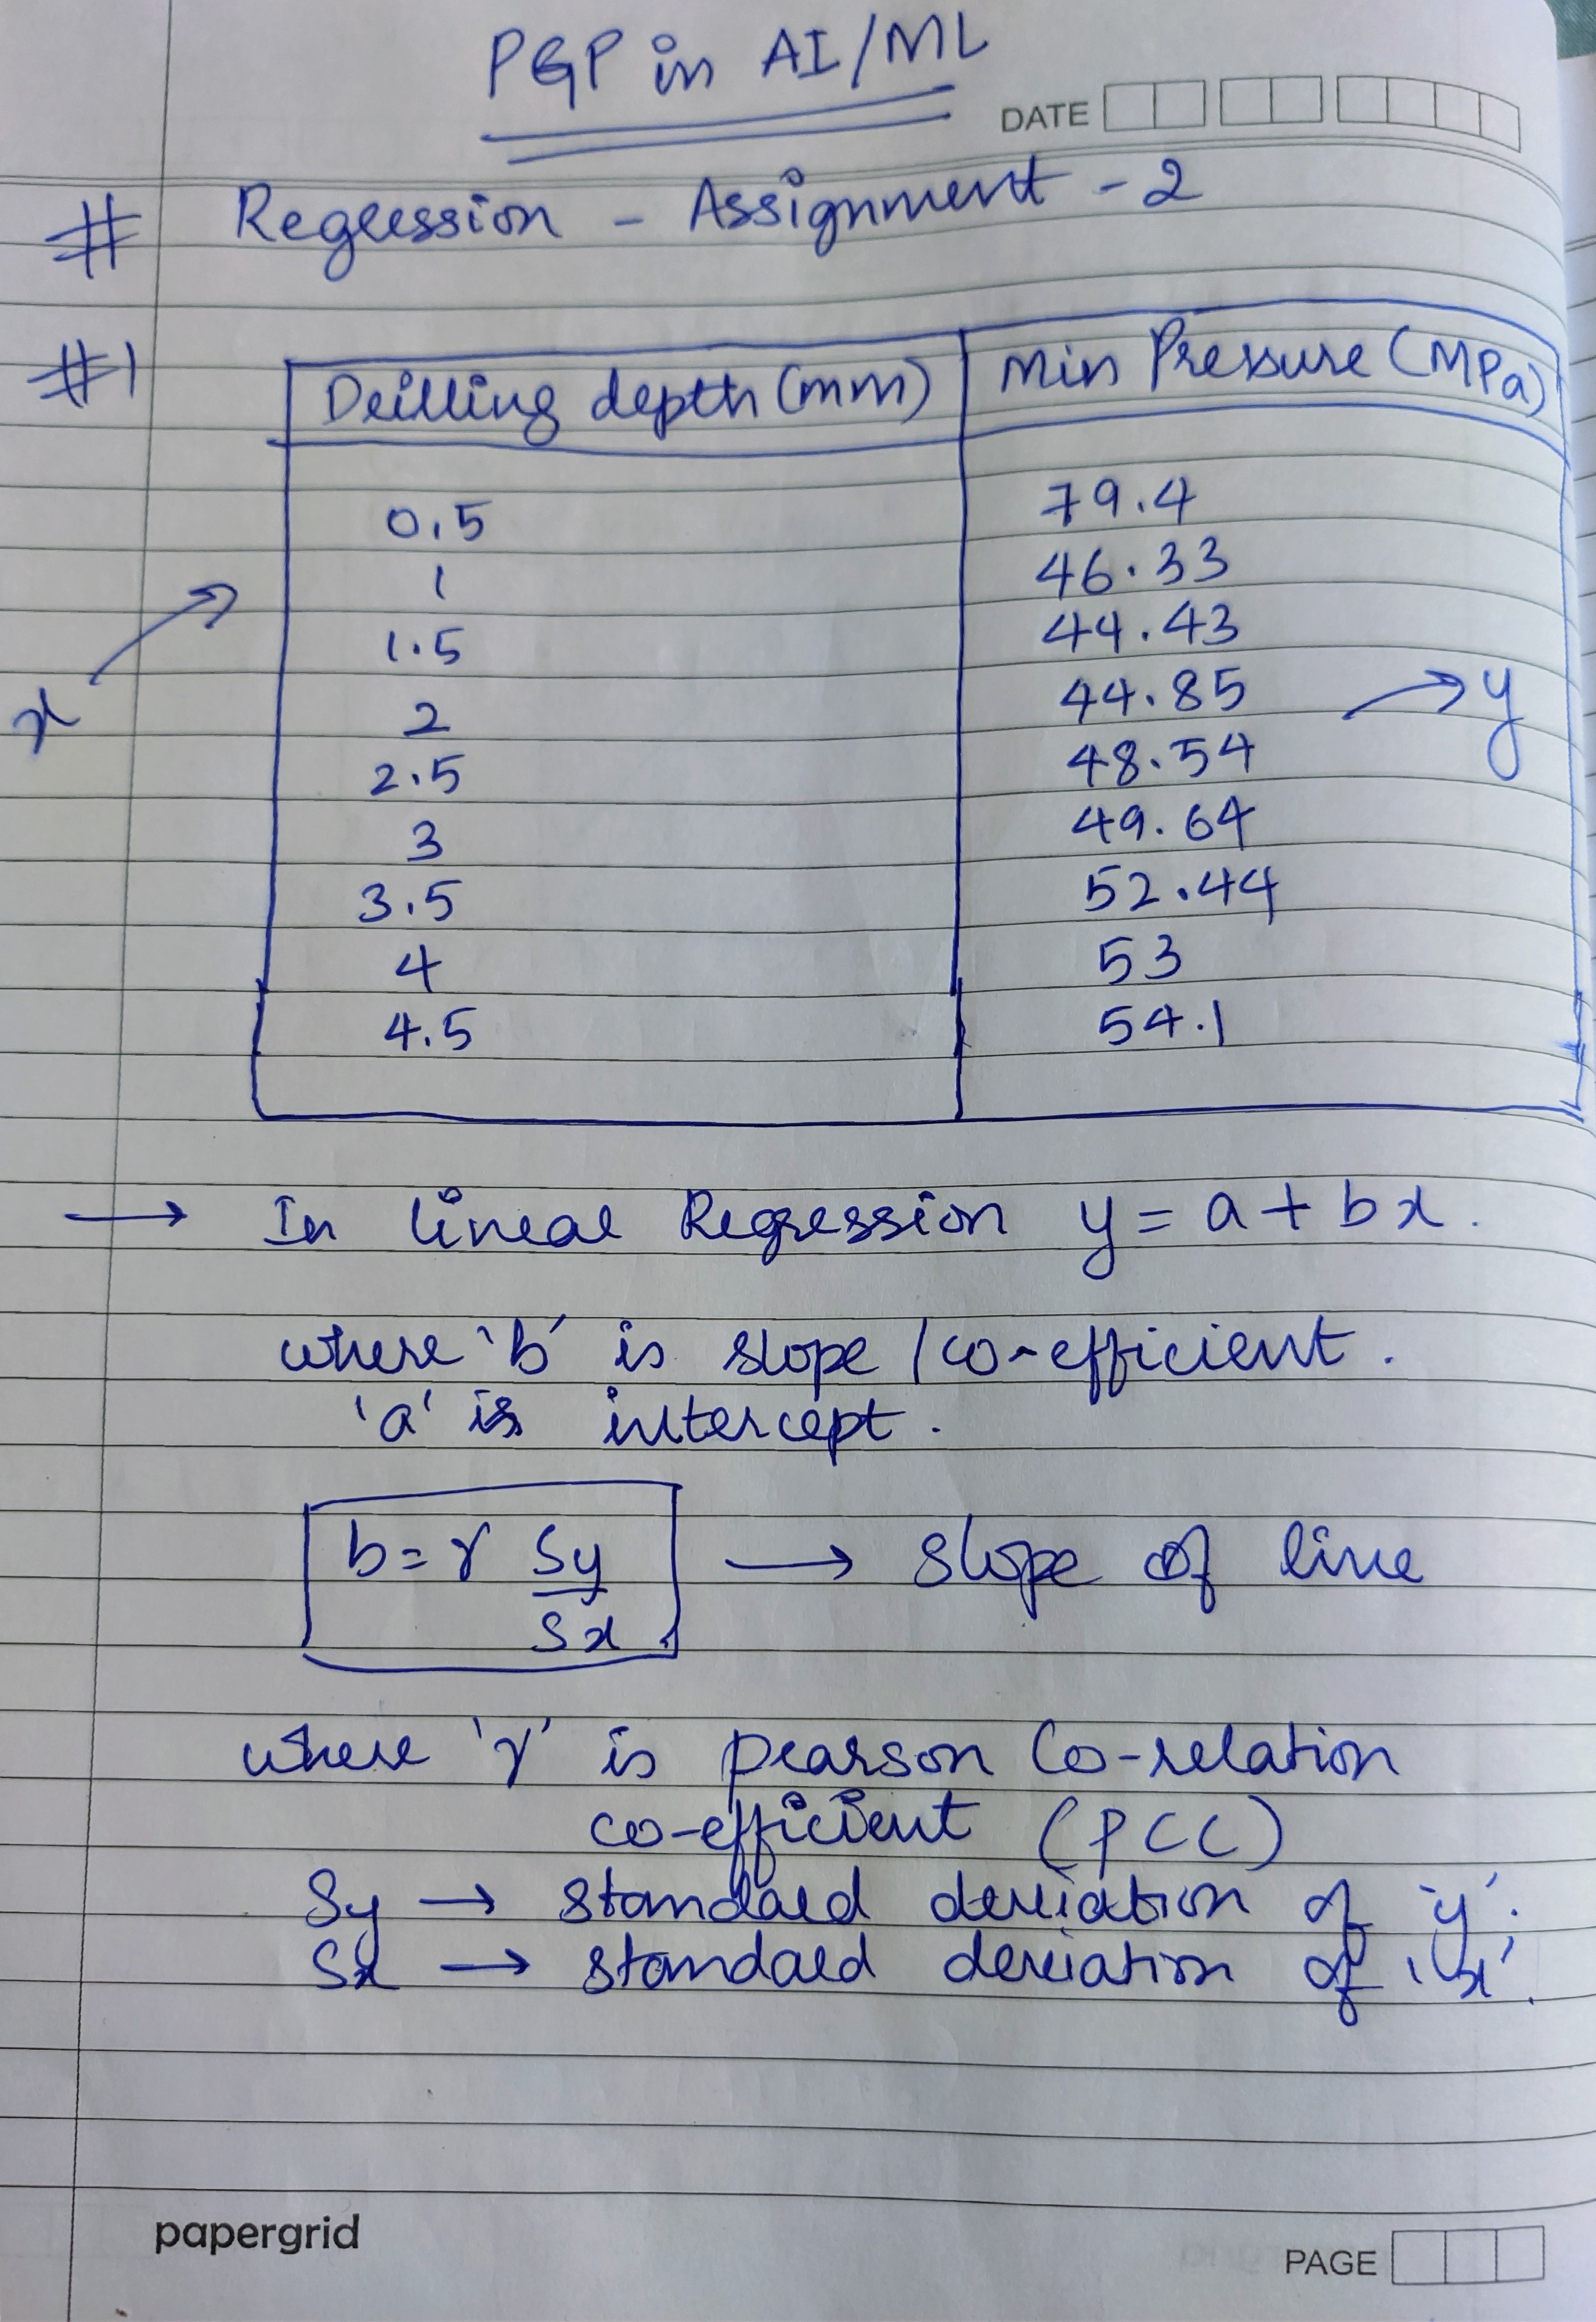 PGP in AI/ML
DATE
# Regression - Assignment - 2
#1
Drilling depth (mm) Min Pressure (MPa)
0.5 79.4
1 46.33
1.5 44.43
x 2 44.85 → y
2.5 48.54
3 49.64
3.5 52.44
4 53
4.5 54.1
→ In linear Regression y = a + bx.
where 'b' is slope / co-efficient.
'a' is intercept.
b = r Sy/Sx → slope of line
where 'r' is pearson Co-relation
co-efficient (PCC)
Sy → standard deviation of 'y'.
Sx → standard deviation of 'x'.
papergrid
PAGE